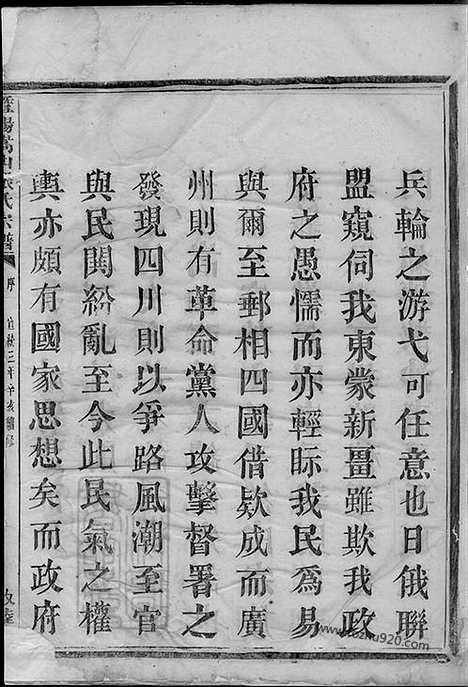 兵輪之游弋可任意也日俄聯
盟窺伺我東蒙新畺雖欺我政
府之愚懦而亦輕眎我民爲易
與爾至郵相四國借欵成而廣
州則有革命黨人攻擊督署之
發現四川則以爭路風潮至官
與民鬨紛亂至今此民氣之權
輿亦頗有國家思想矣而政府
氏宗譜
序
宣統三年辛亥續修